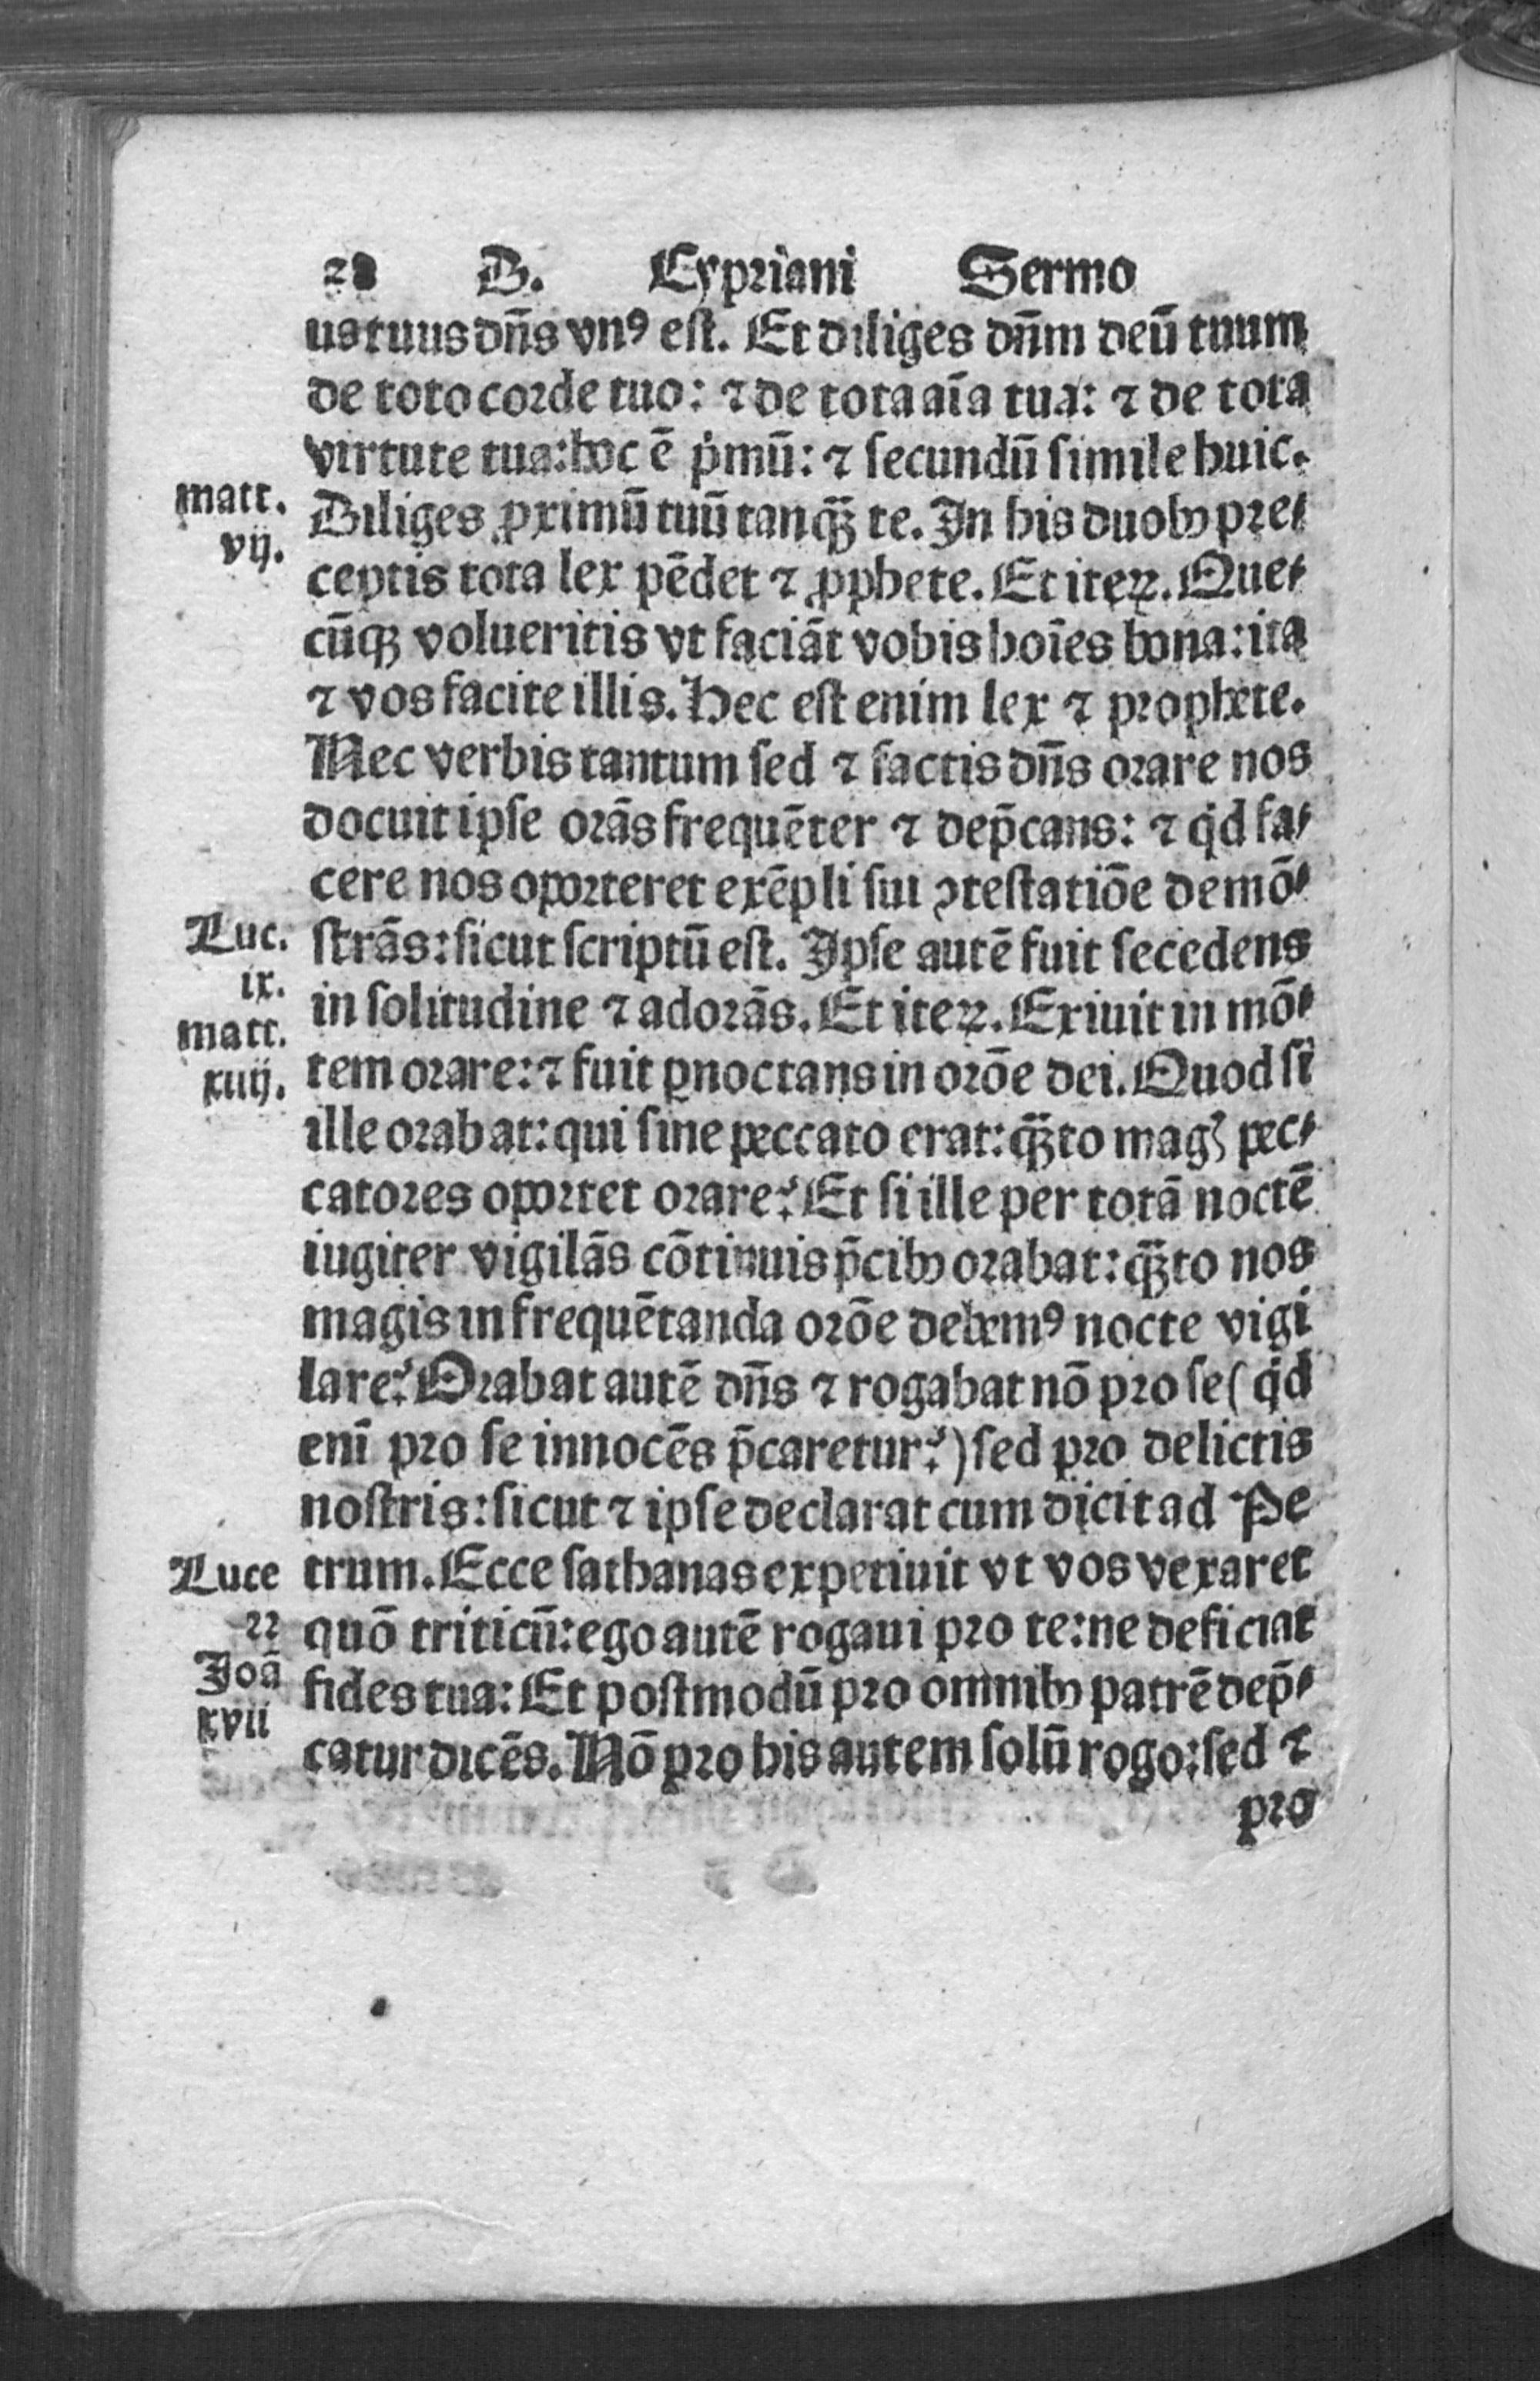 28 D. Cypriani Sermo
us tuus dn̄s vnꝰ est. Et diliges dn̄m deū tuum
de toto corde tuo: ⁊ de tota aīa tua: ⁊ de tota
virtute tua: hoc ē pͥmū: ⁊ secundū simile huic.
matt.
vij.
Diliges ꝓximū tuū tanqꝫ̄ te. In his duobꝰ pre⸗
ceptis tota lex pēdet ⁊ ꝓphete. Et iteꝝ. Que⸗
cūqꝫ volueritis vt faciāt vobis hoīes bona: ita
⁊ vos facite illis. Hec est enim lex ⁊ prophete.
Nec verbis tantum sed ⁊ factis dn̄s orare nos
docuit ipse orās frequēter ⁊ dep̄cans: ⁊ qͥd fa⸗
cere nos oporteret exēpli sui ꝯtestatiōe demō⸗
Luc.
ix.
strās: sicut scriptū est. Ipse autē fuit secedens
in solitudine ⁊ adorās. Et iteꝝ. Exiuit in mō⸗
matt.
xiiij.
tem orare: ⁊ fuit ꝑnoctans in orōe dei. Quod si
ille orabat: qui sine peccato erat: qꝫ̄to magꝭ pec⸗
catores oportet orare? Et si ille per totā noctē
iugiter vigilās cōtinuis p̄cibꝰ orabat: qꝫ̄to nos
magis in frequētanda orōe debemꝰ nocte vigi
lare? Orabat autē dn̄s ⁊ rogabat nō pro se (qͥd
enī pro se innocēs p̄caretur?) sed pro delictis
nostris: sicut ⁊ ipse declarat cum dicit ad Pe
Luce
22
trum. Ecce sathanas expetiuit vt vos vexaret
quō triticū: ego autē rogaui pro te: ne deficiat
Joā
xvii
fides tua: Et postmodū pro omnibꝰ patrē dep̄⸗
catur dicēs. Nō pro his autem solū rogo: sed ⁊
pro